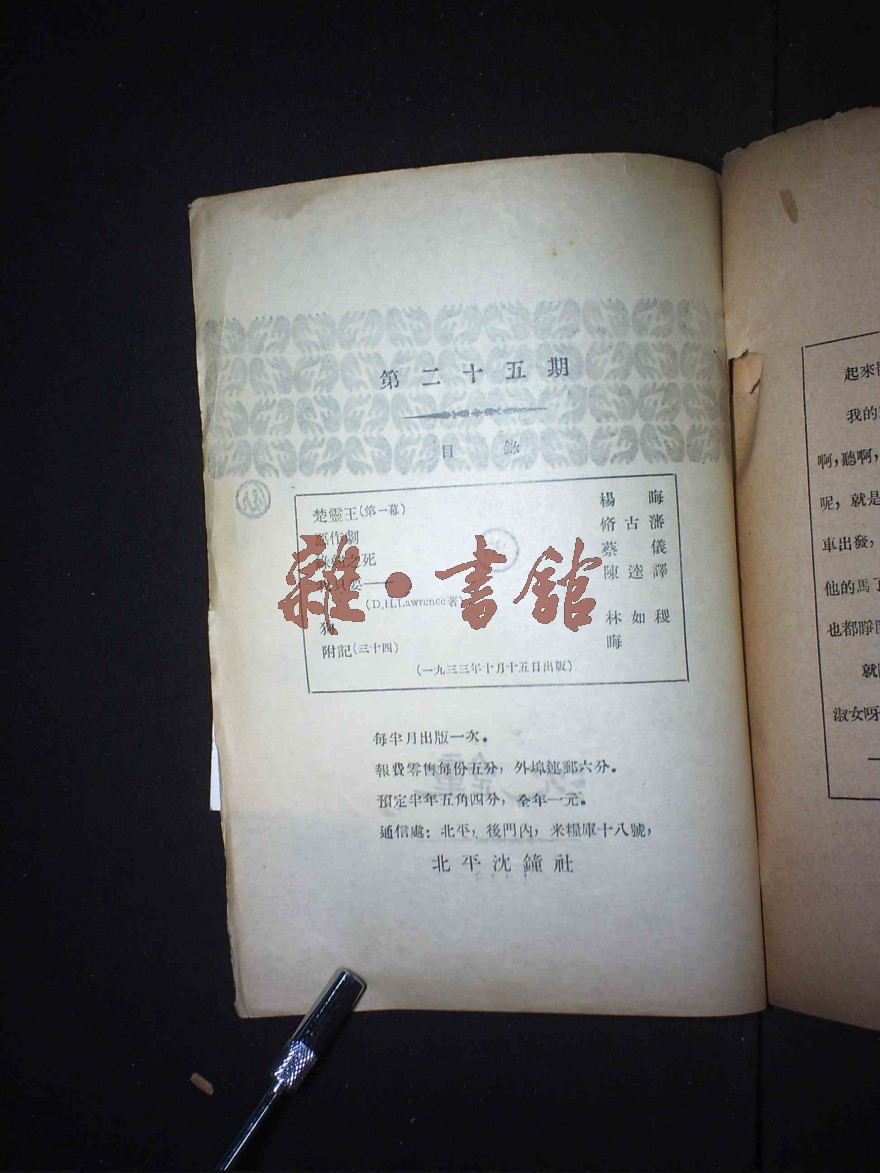 第二十五期
目錄
楚靈王(第一幕) 楊晦
惡作劇 脩古藩
之死 蔡儀
陳逵譯
(D.H.Lawrence著)
狗 林如稷
附記(三十四) 晦
(一九三三年十月十五日出版)
每半月出版一次。
報費零售每份五分,外埠連郵六分。
預定半年五角四分,全年一元。
通信處:北平,後門內,米糧庫十八號,
北平沈鐘社
雜·書館
起來
我的
啊,聽啊,
呢,就是
車出發,
他的馬了
也都睜
就
淑女呀